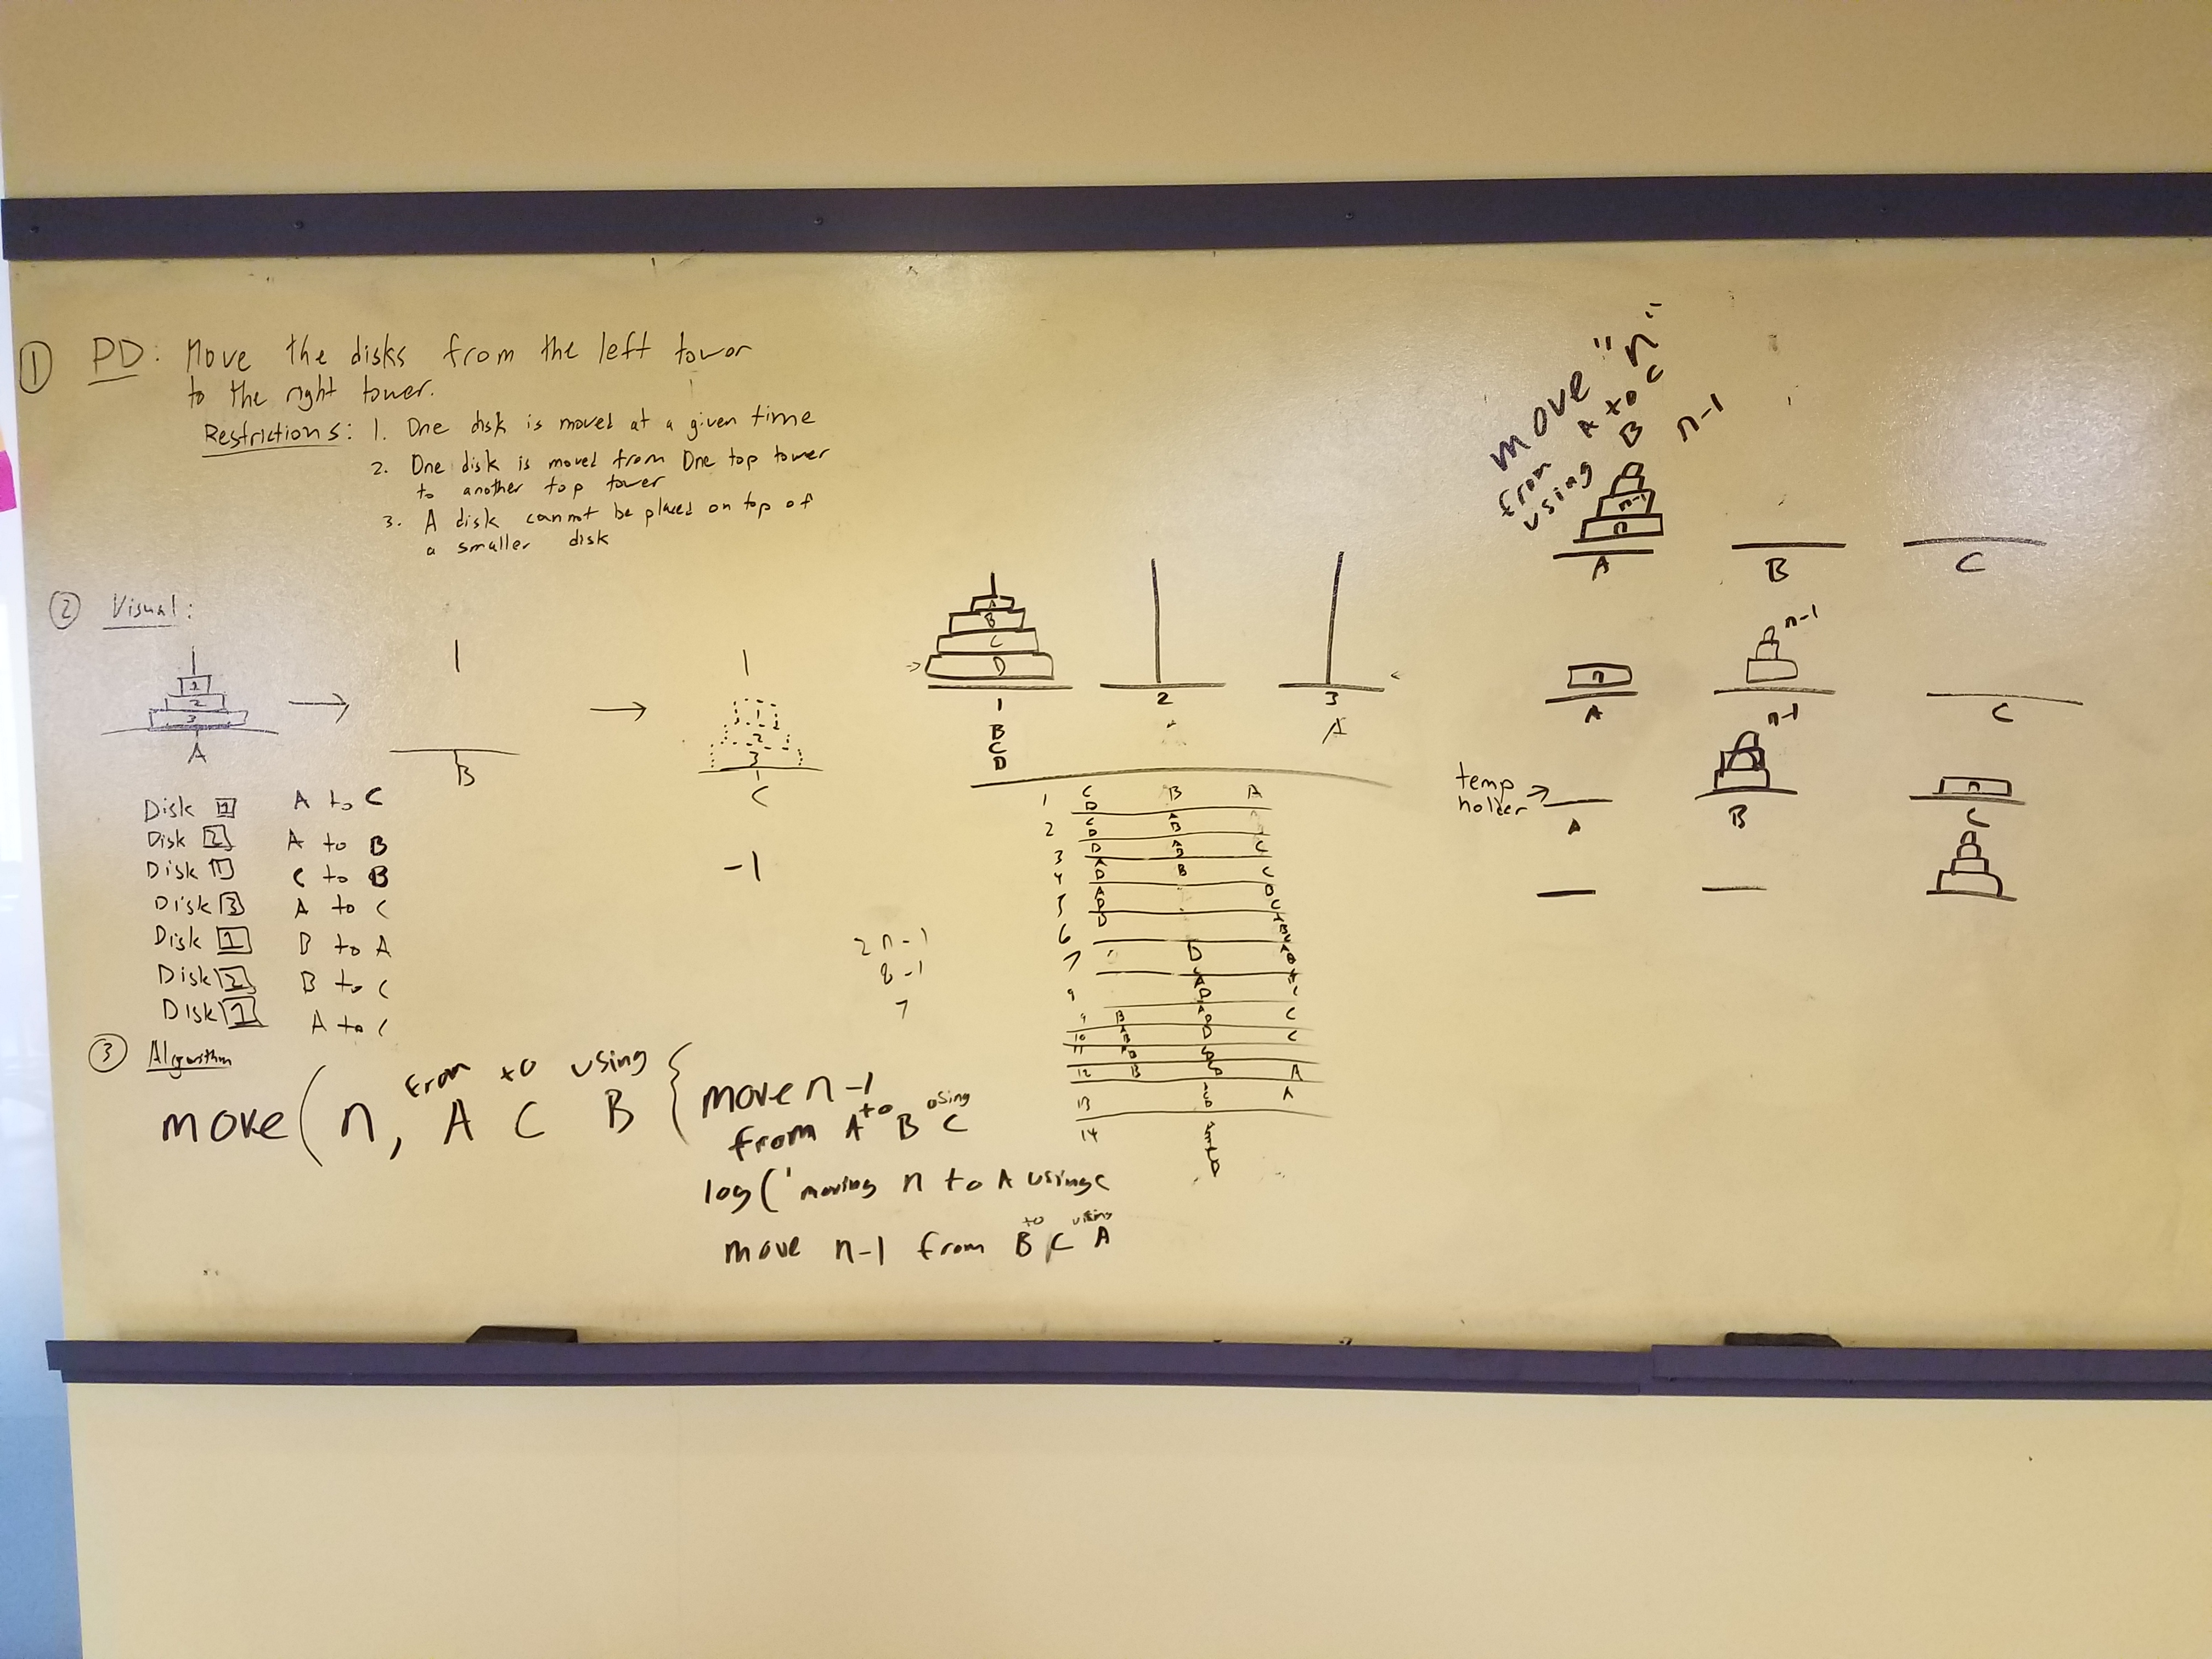 ① PD: Move the disks from the left tower
to the right tower.
Restrictions: 1. One disk is moved at a given time
2. One disk is moved from One top tower
to another top tower
3. A disk cannot be placed on top of
a smaller disk
② Visual:
2
3
A
B
1
2
3
C
Disk 1 A to C
Disk 2 A to B
Disk 1 C to B
Disk 3 A to C
Disk 1 B to A
Disk 2 B to C
Disk 1 A to C
-1
2n-1
8-1
7
③ Algorithm
from to using
move(n, A C B { move n-1
from A to B using C
log('moving n to A using C
move n-1 from B to C using A
A
B
C
D
1 2 3
B A
C
D
1 C B A
D
2 C A
D B
3 D A C
B
4 A B C
D
5 A B
D C
6 D A
B
C
7 D A
B
9 A C
D
9 B A C
D
10 A D C
B
11 A
B
12 B A
13 A
14
move "n"
from A to C
using B
n-1
n-1
n
A B C
n-1
n
A B C
n-1
temp
holder
n
A B C